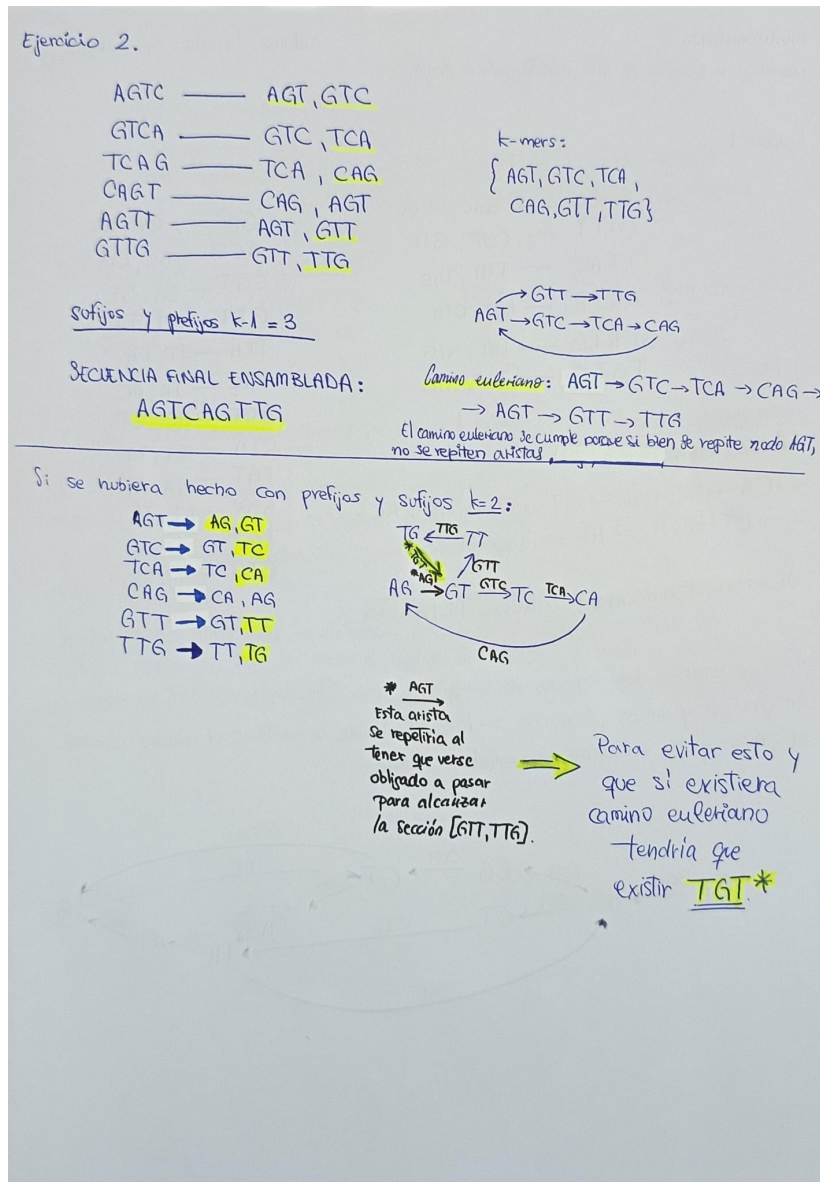 Ejercicio 2.
AGTC —— AGT, GTC
GTCA —— GTC, TCA
TCAG —— TCA, CAG
CAGT —— CAG, AGT
AGTT —— AGT, GTT
GTTG —— GTT, TTG
k-mers:
{ AGT, GTC, TCA,
CAG, GTT, TTG}
Sufijos y prefijos k-1 = 3
→ GTT → TTG
AGT → GTC → TCA → CAG
SECUENCIA FINAL ENSAMBLADA:
AGTCAGTTG
Camino euleriano: AGT → GTC → TCA → CAG →
→ AGT → GTT → TTG
El camino euleriano se cumple porque si bien se repite nodo AGT,
no se repiten aristas
Si se hubiera hecho con prefijos y sufijos k=2:
AGT → AG, GT
GTC → GT, TC
TCA → TC, CA
CAG → CA, AG
GTT → GT, TT
TTG → TT, TG
TG ←TTG TT
* TGT
GTT
*AGT
AG → GT GTC→ TC TCA→ CA
CAG
* AGT →
Esta arista
se repetiría al
tener que verse
obligado a pasar
para alcanzar
la sección [GTT, TTG].
Para evitar esto y
que sí existiera
camino euleriano
tendría que
existir TGT.*